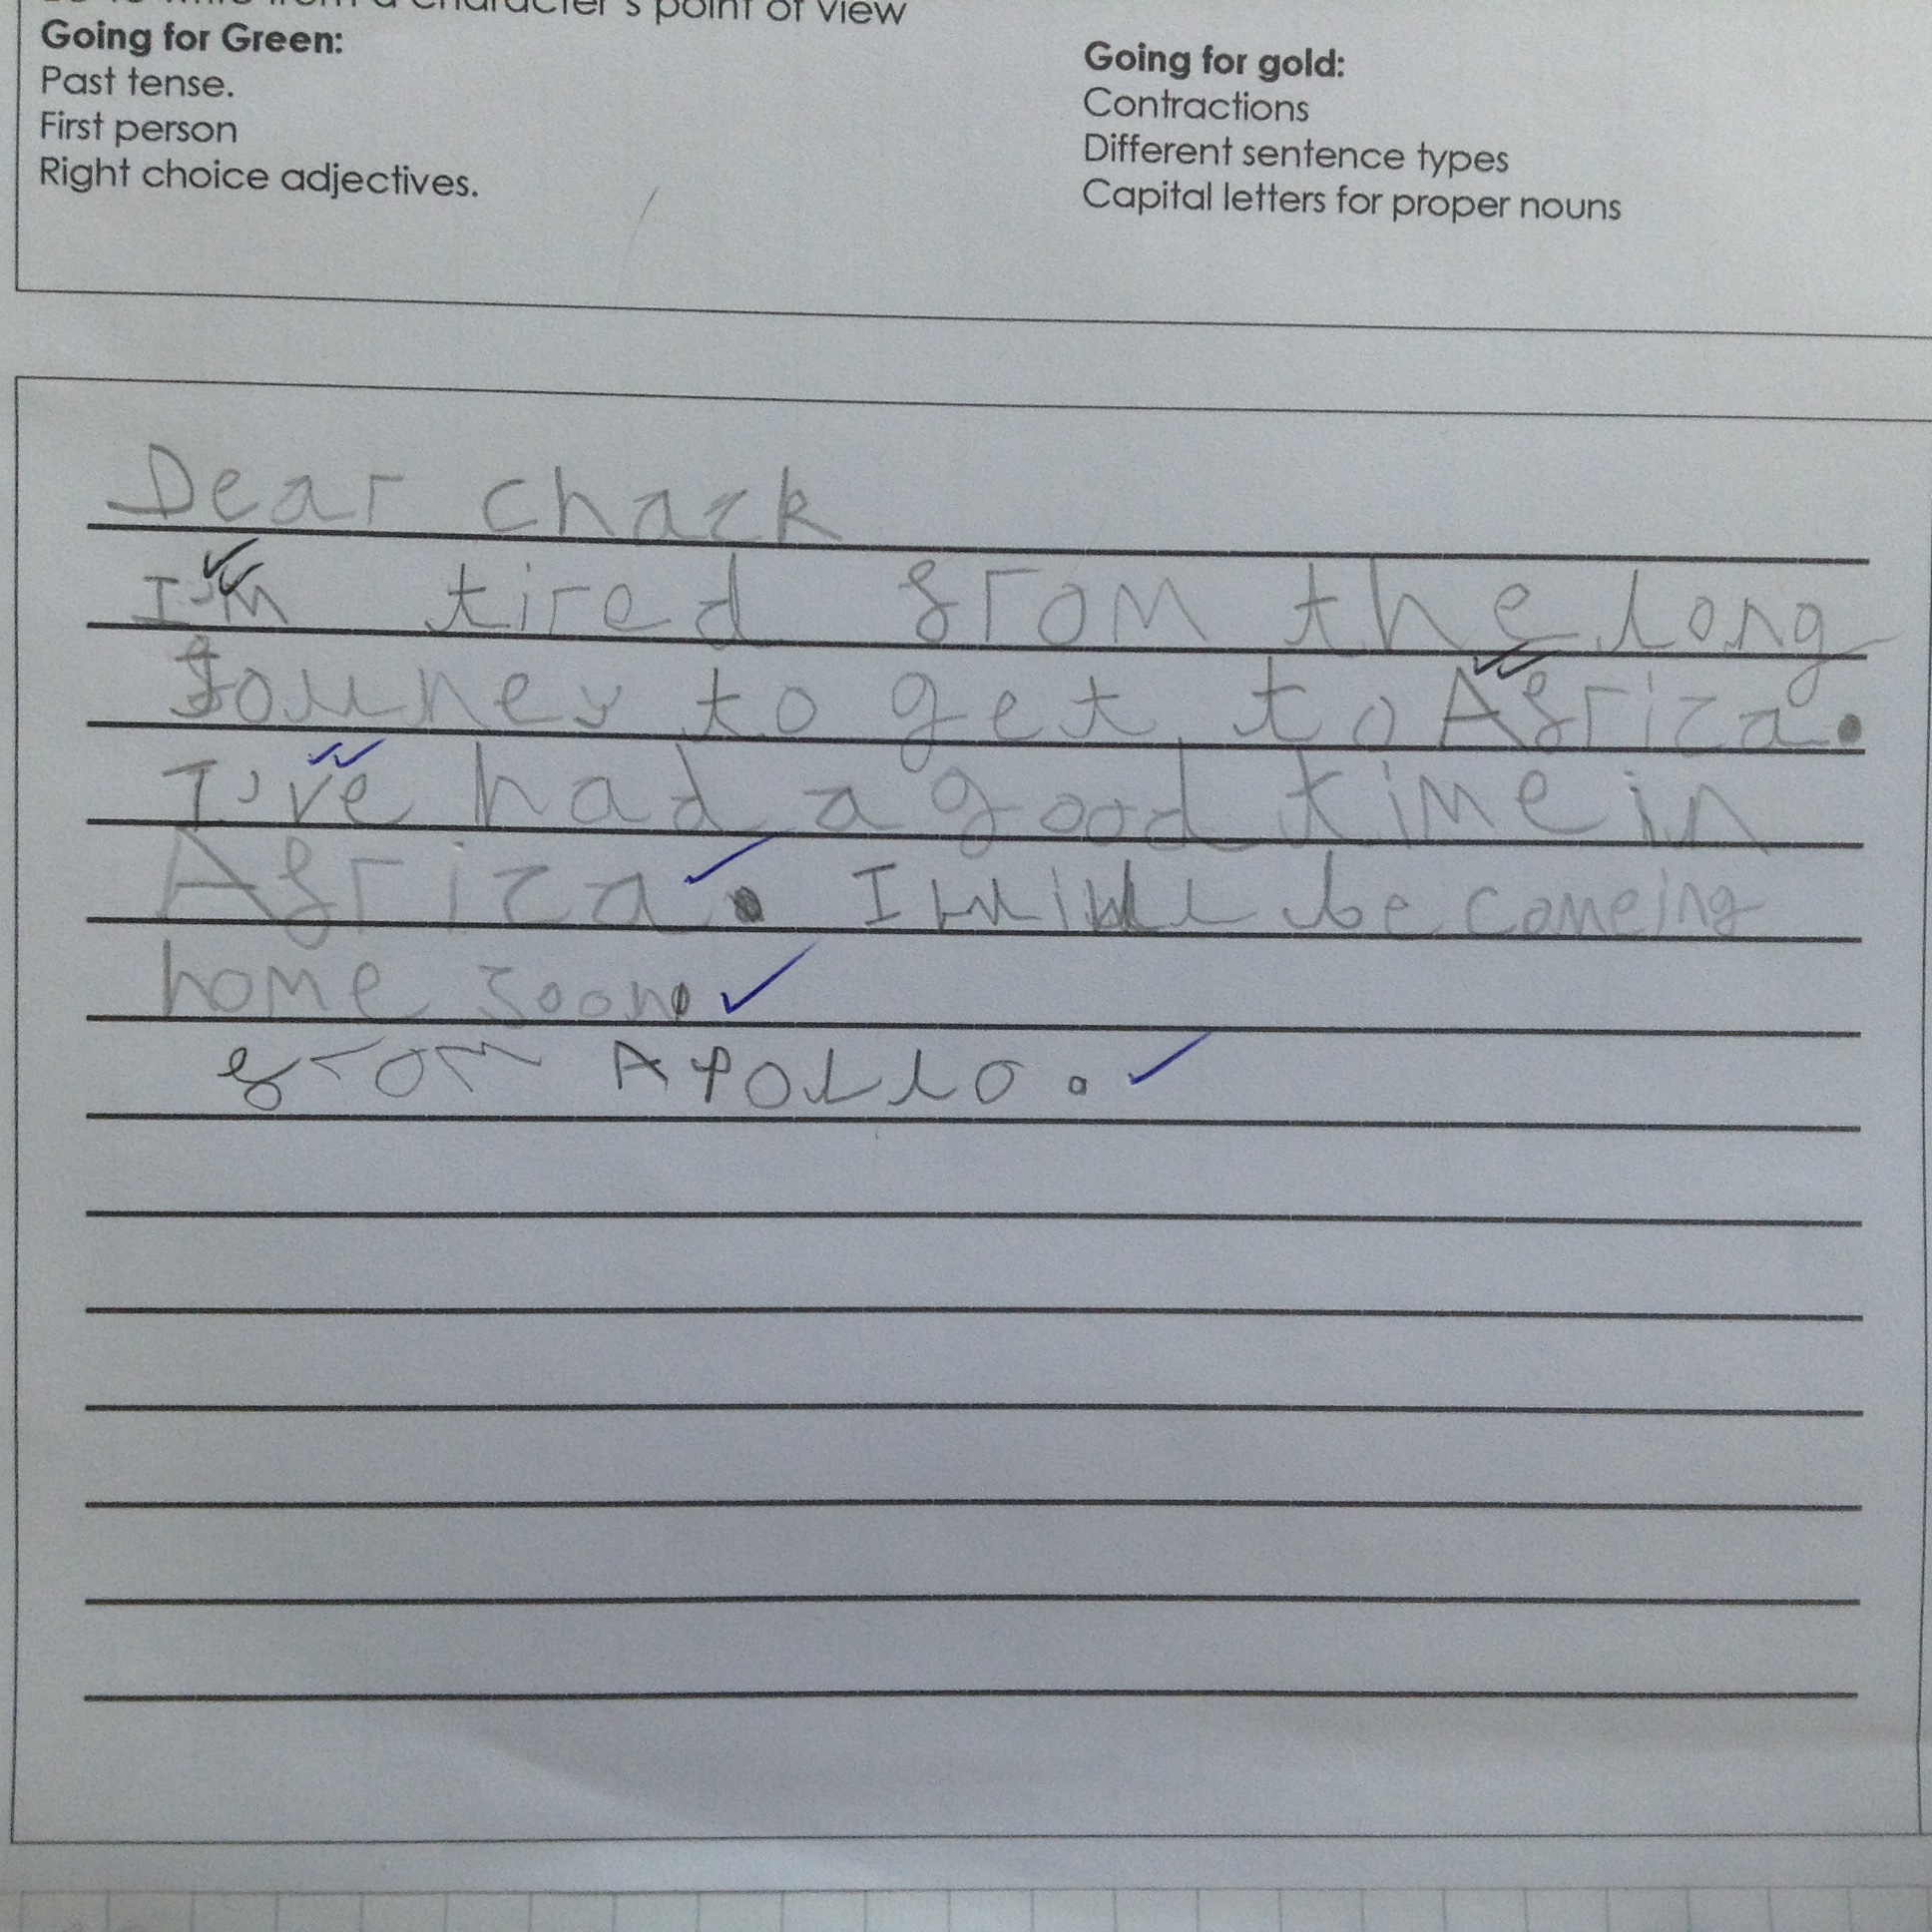 character's point of view
Going for Green:
Past tense.
First person
Right choice adjectives.
Going for gold:
Contractions
Different sentence types
Capital letters for proper nouns
Dear chack
I'm tired from the long
Jouney to get to Africa.
I've had a good time in
Africa. I will be comeing
home soon.
from Apollo.